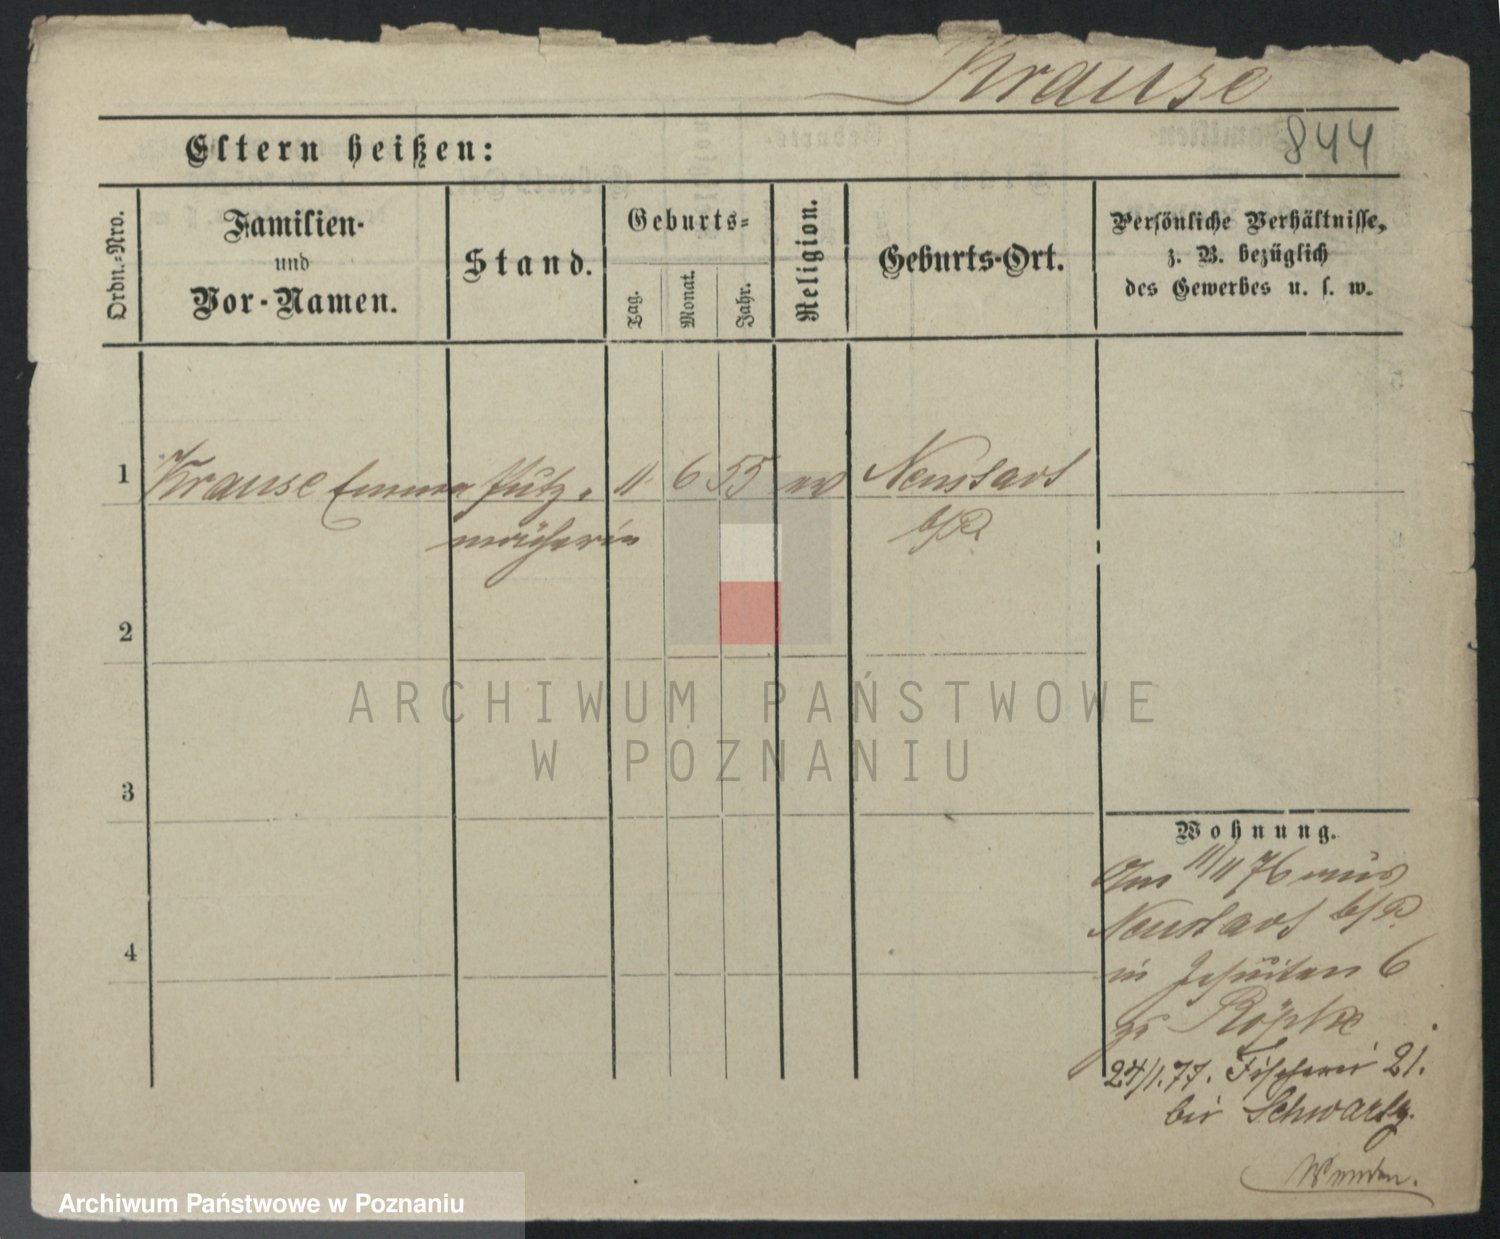 Krause
844
Eltern heißen:
Ordn.-Nro.
Familien-
und
Vor-Namen.
Stand.
Geburts-
Tag.
Monat.
Jahr.
Religion.
Geburts-Ort.
Persönliche Verhältnisse,
z. B. bezüglich
des Gewerbes u. s. w.
1 Krause Emma Putz- 11 6 55 ev Neustadt
macherin b/P.
2
ARCHIWUM PAŃSTWOWE
W POZNANIU
3
Wohnung.
Am 11/11 76 aus
Neustadt b/P.
4
in Jesuiten 6
zu Röpke
24/1.77. Fischerei 21.
bei Schwartz.
Wenden.
Archiwum Państwowe w Poznaniu